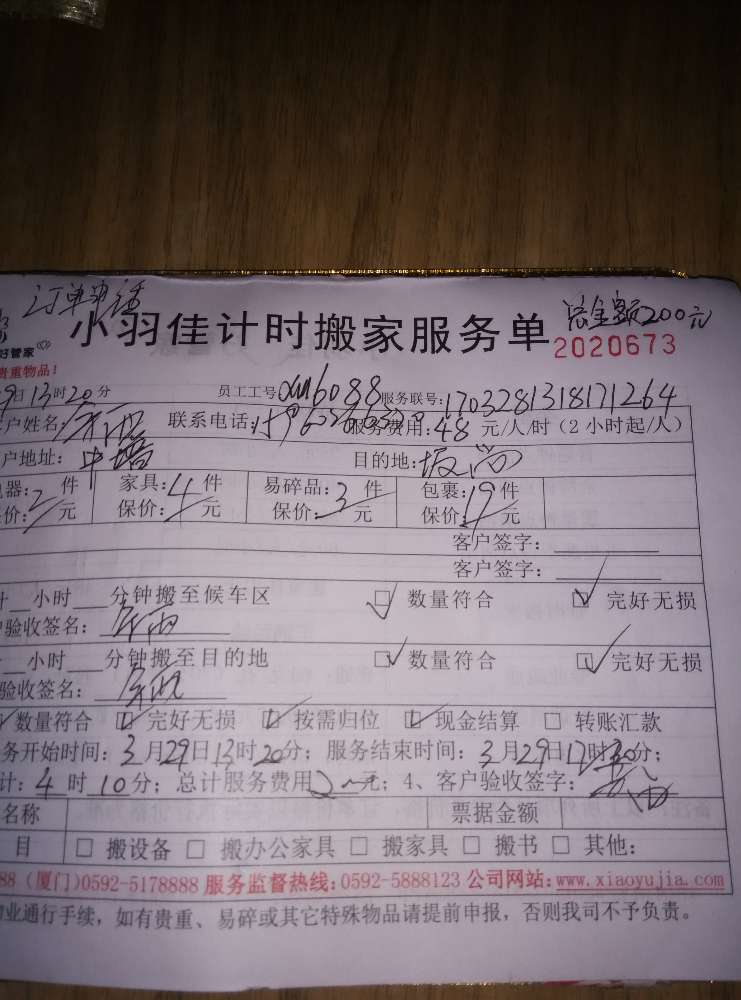 订单电话
小羽佳计时搬家服务单 总金额200元
好管家 2020673
贵重物品!
9日13时20分 员工工号xm6088服务联号:1703281318171264
户姓名: 联系电话: 服务费用:48元/人/时(2小时起/人)
户地址:中埔 目的地:坂尚
器:2件 家具:4件 易碎品:3件 包裹:19件
价: 元 保价: 元 保价: 元 保价: 元
客户签字:
客户签字:
计 小时 分钟搬至候车区 ☑ 数量符合 ☑ 完好无损
验收签名:
小时 分钟搬至目的地 ☑ 数量符合 ☑ 完好无损
验收签名:
数量符合 ☑ 完好无损 ☑ 按需归位 ☑ 现金结算 □ 转账汇款
务开始时间:3月29日13时20分;服务结束时间:3月29日17时30分;
计:4时10分;总计服务费用 元;4、客户验收签字:
名称 票据金额
目 □ 搬设备 □ 搬办公家具 □ 搬家具 □ 搬书 □ 其他:
88(厦门)0592-5178888 服务监督热线:0592-5888123 公司网站:www.xiaoyujia.com
业通行手续,如有贵重、易碎或其它特殊物品请提前申报,否则我司不予负责。